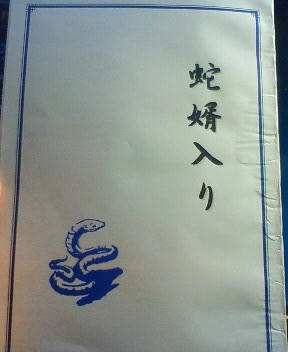 蛇婿入り